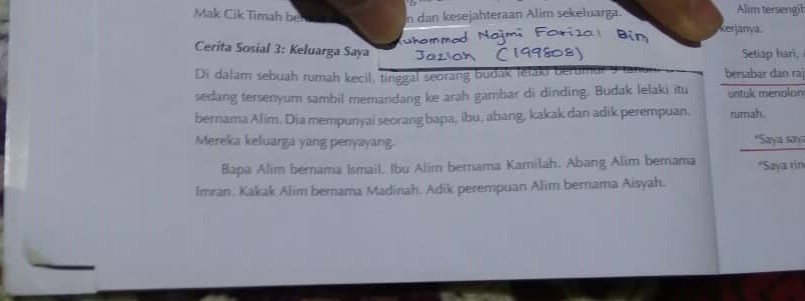 Mak Cik Timah
dan kesejahteraan Alim sekeluarga.
Muhammad Najmi Farizal Bin
Jazlan (199808)
Cerita Sosial 3: Keluarga Saya
Di dalam sebuah rumah kecil, tinggal seorang budak lelaki berumur 9 tahun
sedang tersenyum sambil memandang ke arah gambar di dinding. Budak lelaki itu
bernama Alim. Dia mempunyai seorang bapa, ibu, abang, kakak dan adik perempuan.
Mereka keluarga yang penyayang.
Bapa Alim bernama Ismail. Ibu Alim bernama Kamilah. Abang Alim bernama
Imran. Kakak Alim bernama Madinah. Adik perempuan Alim bernama Aisyah.
Alim
kerjanya.
Setiap hari,
bersabar dan
untuk
rumah.
"Saya
"Saya